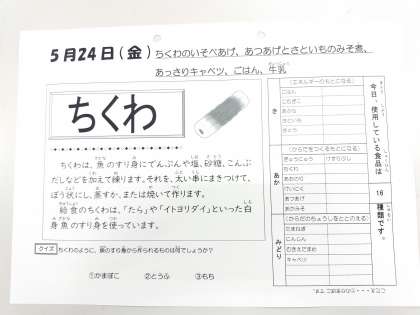 5月24日(金) ちくわのいそべあげ、あつあげとさといものみそ煮、
あっさりキャベツ、ごはん、牛乳
ちくわ
ちくわは、魚のすり身にでんぷんや塩、砂糖、こんぶ
だしなどを加えて練ります。それを、太い串にまきつけて、
ぼう状にし、蒸すか、または焼いて作ります。
給食のちくわは、「たら」や「イトヨリダイ」といった白
身魚のすり身を使っています。
クイズ ちくわのように、魚のすり身から作られるものは何でしょうか?
①かまぼこ ②とうふ ③もち
今日、使用している食品は
18
種類です。
き
(エネルギーのもとになる)
ごはん
こむぎこ
あぶら
さといも
さとう
あか
(からだをつくるもとになる)
ぎゅうにゅう
ちくわ
あおのり
ぶたにく
あつあげ
あかみそ
みどり
(からだのちょうしをととのえる)
たまねぎ
にんじん
むきえだまめ
キャベツ